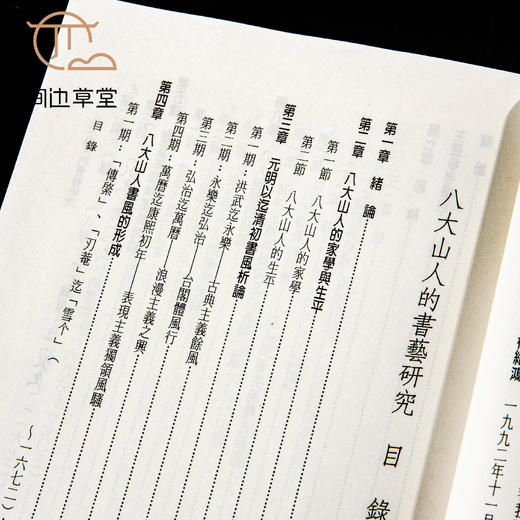 澗边草堂
八大山人的書藝研究 目錄
第一章 緒論
第二章 八大山人的家學與生平
第一節 八大山人的家學
第二節 八大山人的生平
第三章 元明以迄清初書風析論
第一期：洪武迄永樂
第二期：永樂迄弘治——古典主義餘風
第三期：弘治迄萬曆——台閣體風行
第四期：萬曆迄康熙初年——浪漫主義之興
——表現主義獨領風騷
第四章 八大山人書風的形成
第一期：「傳綮」、「刃菴」迄「雪个」（
～一六七二）
目錄
一九九二年十一月